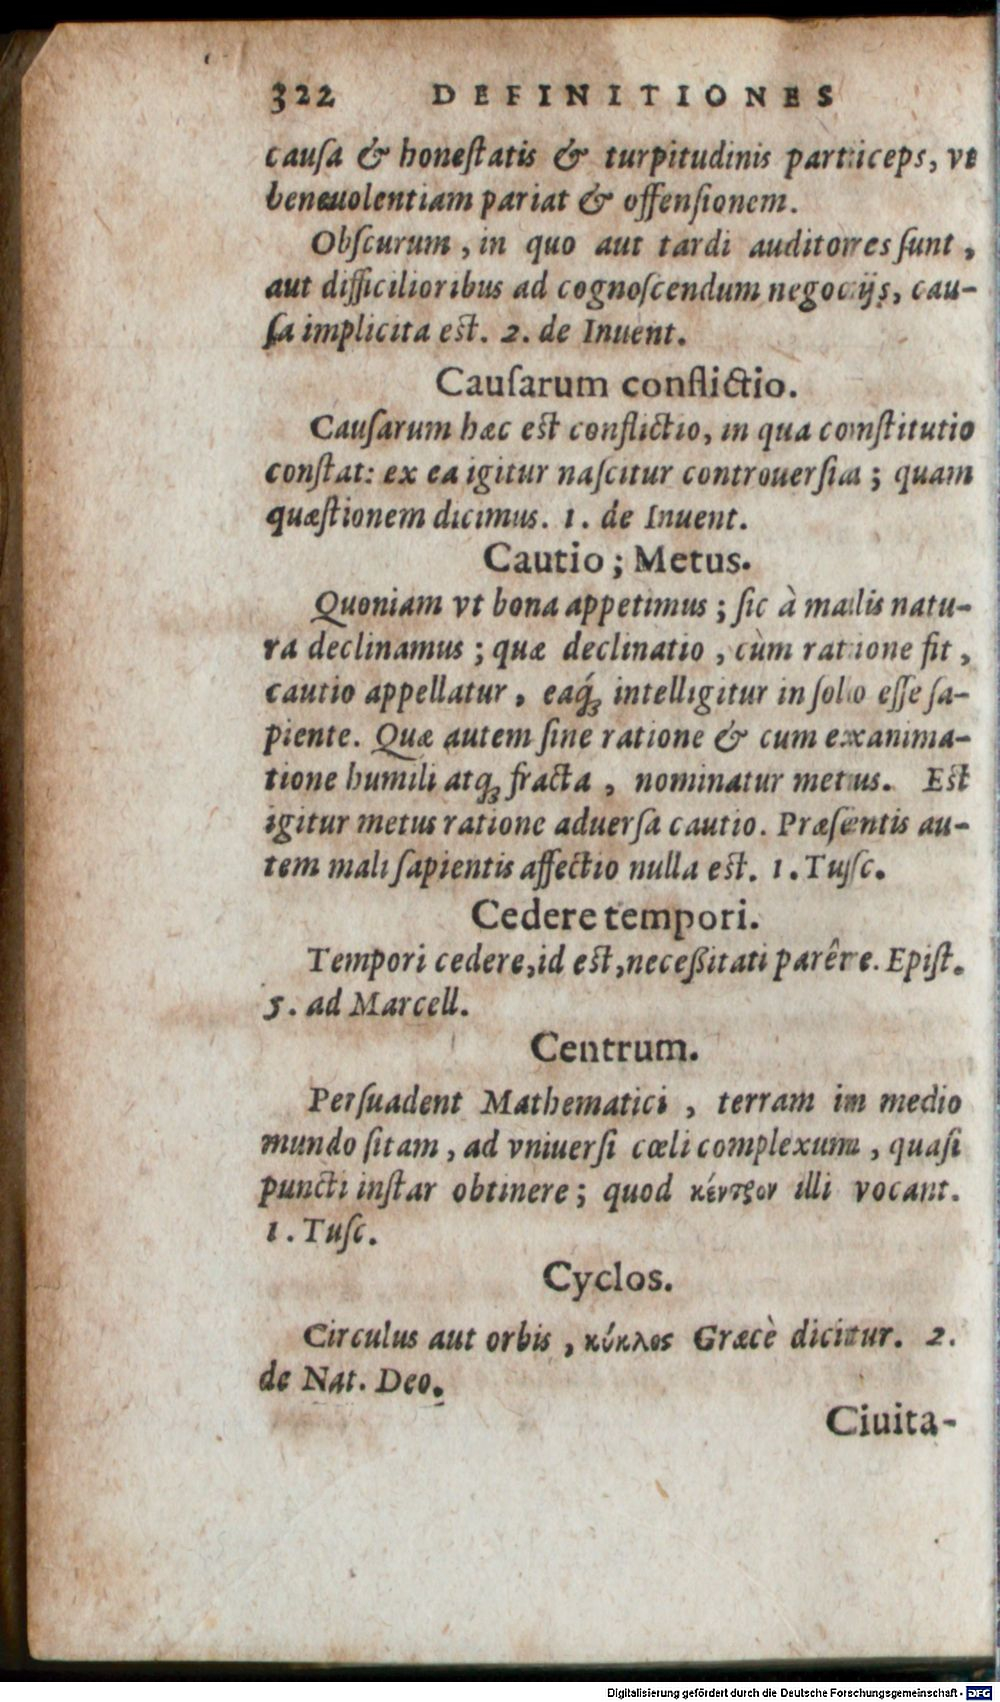 322 DEFINITIONES
cauſa & honeſtatis & turpitudinis particeps, vt
beneuolentiam pariat & offenſionem.
Obſcurum, in quo aut tardi auditores ſunt,
aut difficilioribus ad cognoſcendum negocijs, cau-
ſa implicita est. 2. de Inuent.
Cauſarum conflictio.
Cauſarum hæc est conflictio, in qua conſtitutio
conſtat: ex ea igitur naſcitur controuerſia; quam
quæſtionem dicimus. 1. de Inuent.
Cautio; Metus.
Quoniam vt bona appetimus; ſic à malis natu-
ra declinamus; quæ declinatio, cùm ratione fit,
cautio appellatur, eaq́; intelligitur in ſolo eſſe ſa-
piente. Quæ autem ſine ratione & cum exanima-
tione humili atq; fracta, nominatur metus. Est
igitur metus ratione aduerſa cautio. Præſentis au-
tem mali ſapientis affectio nulla est. 1. Tuſc.
Cedere tempori.
Tempori cedere, id est, neceßitati parêre. Epiſt.
5. ad Marcell.
Centrum.
Perſuadent Mathematici, terram in medio
mundo ſitam, ad vniuerſi cœli complexum, quaſi
puncti inſtar obtinere; quod κέντρον illi vocant.
1. Tuſc.
Cyclos.
Circulus aut orbis, κύκλος Græcè dicitur. 2.
de Nat. Deo.
Ciuita-
Digitalisierung gefördert durch die Deutsche Forschungsgemeinschaft - DFG